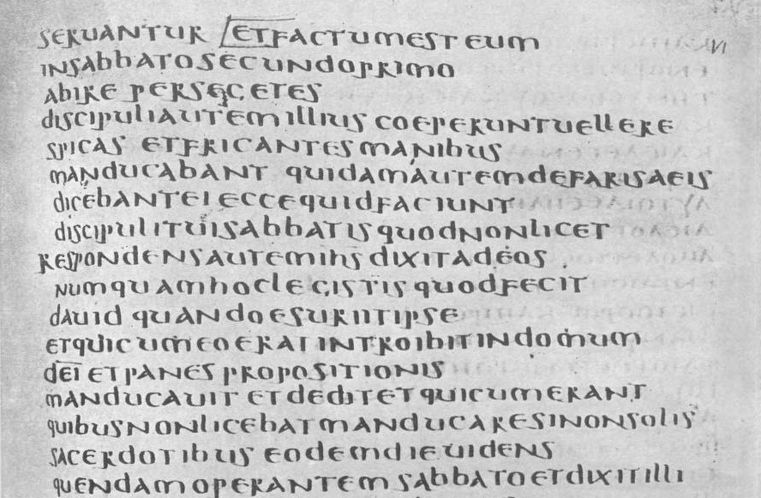 SERUANTUR ETFACTUMESTEUM
INSABBATOSECUNDOPRIMO
ABIRE PERSEGETES
DISCIPULIAUTEMILLIUS COEPERUNTUELLERE
SPICAS ETFRICANTESMANIBUS
MANDUCABANT QUIDAMAUTEMDEFARISAEIS
DICEBANTEI ECCEQUIDFACIUNT
DISCIPULITUISABBATISQUODNONLICET
RESPONDENSAUTEMIHS DIXITADEOS
NUMQUAMHOCLEGISTISQUODFECIT
DAUID QUANDOESURIITIPSE
ETQUICUMEOERAT INTROIBITINDOMUM
DEI ETPANES PROPOSITIONIS
MANDUCAUIT ETDEDITETQUICUMERANT
QUIBUSNONLICEBATMANDUCARESINONSOLIS
SACERDOTIBUS EODEMDIEUIDENS
QUENDAMOPERANTEMSABBATOETDIXITILLI